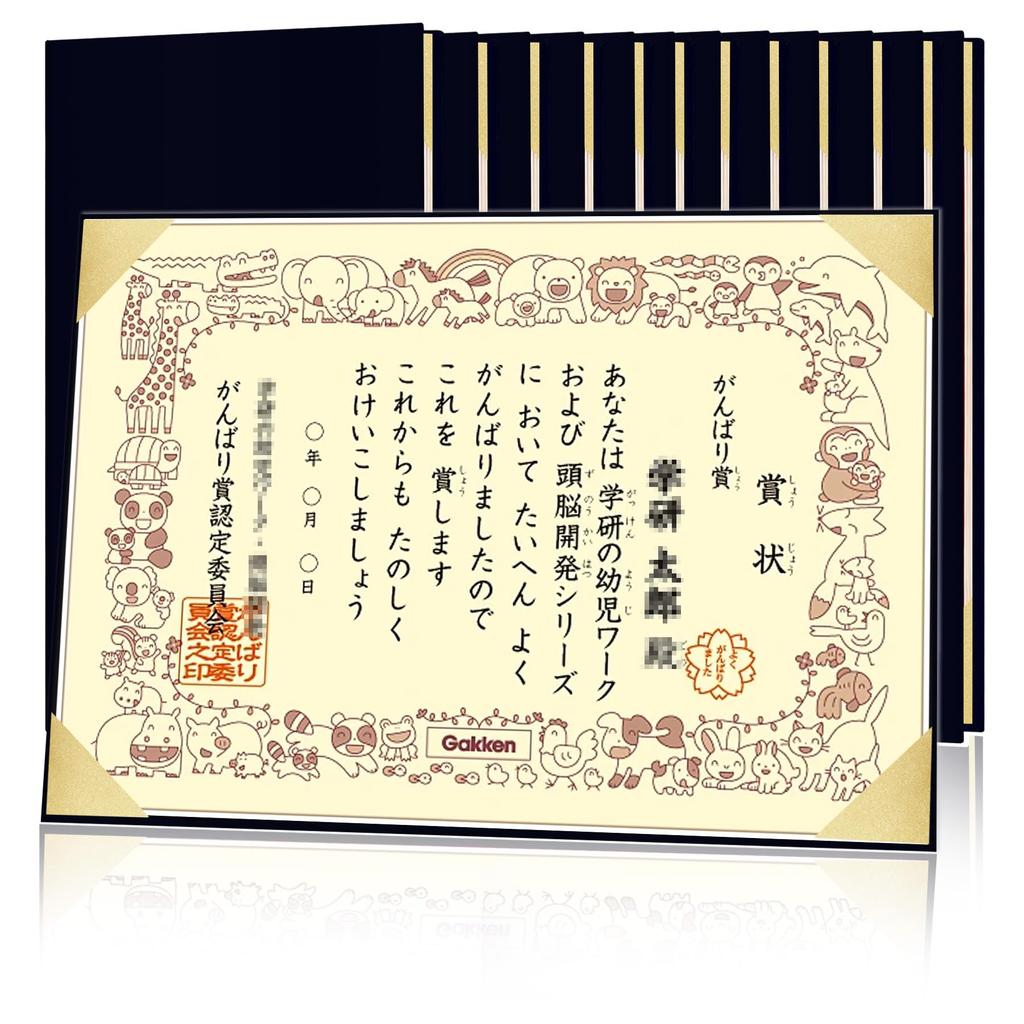 賞状
がんばり賞
学研 太郎 殿
あなたは 学研の幼児ワーク
および 頭脳開発シリーズ
に おいて たいへん よく
がんばりましたので
これを 賞します
これからも たのしく
おけいこしましょう
〇年 〇月 〇日
がんばり賞認定委員会
がんばり
賞認定委
員会之印
よく
がんばり
ました
Gakken